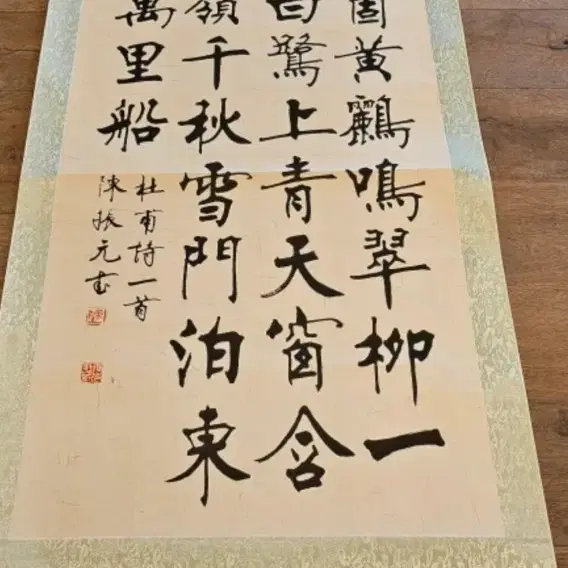 黃鸝鳴翠柳一
白鷺上青天窗含
嶺千秋雪門泊東
萬里船
杜甫詩一首
陳振元書